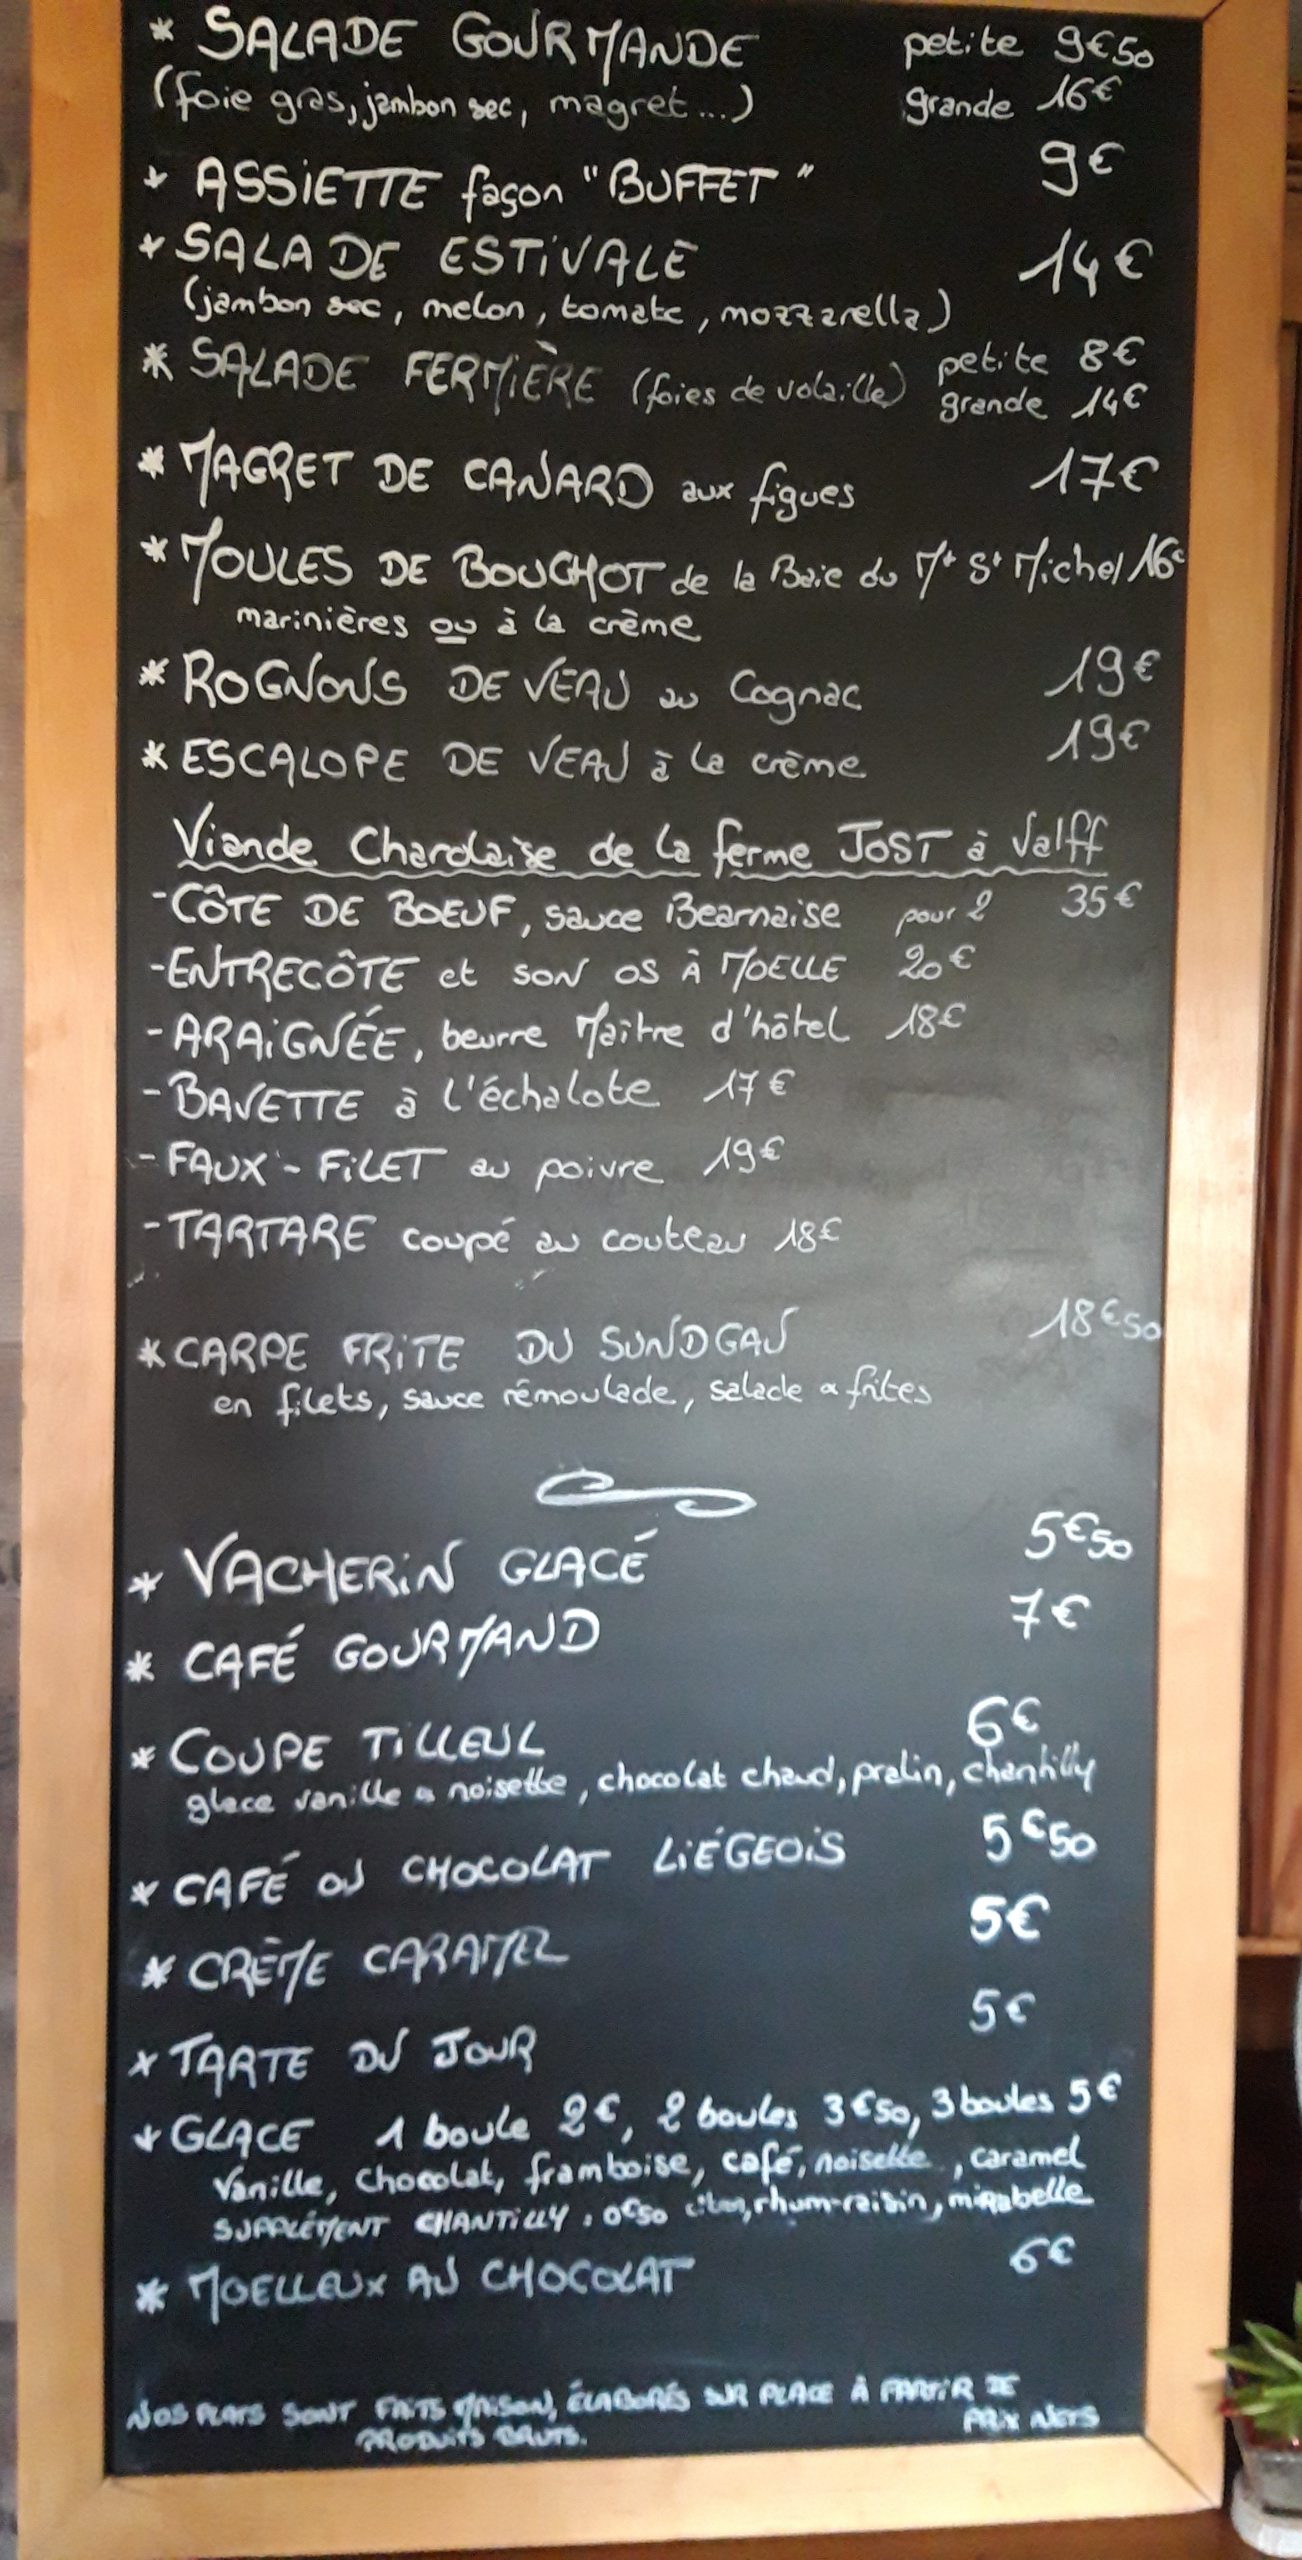 * SALADE GOURMANDE petite 9€50
(foie gras, jambon sec, magret...) grande 16€
* ASSIETTE façon "BUFFET" 9€
* SALADE ESTIVALE 14€
(jambon sec, melon, tomate, mozzarella)
* SALADE FERMIÈRE (foies de volaille) petite 8€
grande 14€
* MAGRET DE CANARD aux figues 17€
* MOULES DE BOUCHOT de la Baie du Mt St Michel 16€
marinières ou à la crème
* ROGNONS DE VEAU au Cognac 19€
* ESCALOPE DE VEAU à la crème 19€
Viande Charolaise de la ferme JOST à Valff
- CÔTE DE BOEUF, sauce Bearnaise pour 2 35€
- ENTRECÔTE et SON OS À MOELLE 20€
- ARAIGNÉE, beurre Maître d'hôtel 18€
- BAVETTE à l'échalote 17€
- FAUX-FILET au poivre 19€
- TARTARE coupé au couteau 18€
* CARPE FRITE DU SUNDGAU 18€50
en filets, sauce rémoulade, salade & frites
* VACHERIN GLACÉ 5€50
* CAFÉ GOURMAND 7€
* COUPE TILLEUL 6€
glace vanille & noisette, chocolat chaud, pralin, chantilly
* CAFÉ OU CHOCOLAT LIÉGEOIS 5€50
* CRÈME CARAMEL 5€
* TARTE DU JOUR 5€
* GLACE 1 boule 2€, 2 boules 3€50, 3 boules 5€
Vanille, chocolat, framboise, café, noisette, caramel
SUPPLÉMENT CHANTILLY: 0€50 citron, rhum-raisin, mirabelle
* MOELLEUX AU CHOCOLAT 6€
NOS PLATS SONT FAITS MAISON, ÉLABORÉS SUR PLACE À PARTIR DE
PRODUITS BRUTS. PRIX NETS